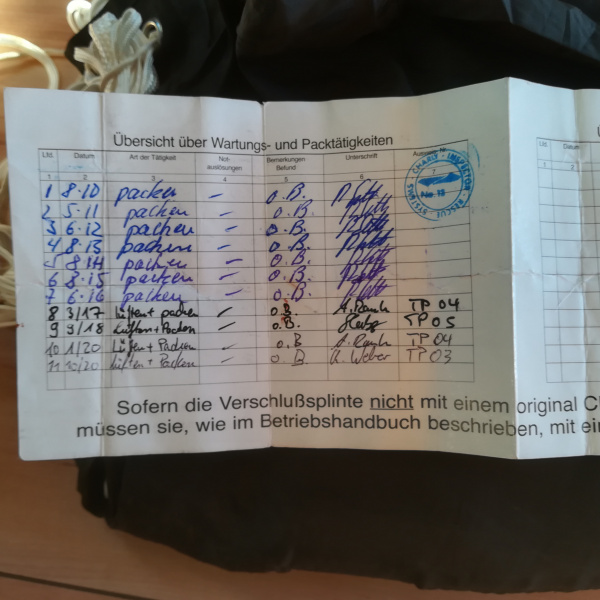 Übersicht über Wartungs- und Packtätigkeiten
Lfd. Datum Art der Tätigkeit Not-auslösungen Bemerkungen Befund Unterschrift
1 2 3 4 5 6 7
1 8.10 packen – o.B.
2 5.11 packen – o.B.
3 6.12 packen – o.B.
4 8.13 packen – o.B.
5 8.14 packen – o.B.
6 8.15 packen – o.B.
7 6.16 packen – o.B.
8 3/17 Lüften + packen – o.B. TP 04
9 3/18 Lüften + Packen – o.B. TP 05
10 1/20 Lüften + Packen – o.B TP 04
11 10/20 Lüften + Packen – o.B. R. Weber TP 03
CHARLY - INSPECTOR RESCUE SYSTEMS
No. 18
Sofern die Verschlußsplinte nicht mit einem original
müssen sie, wie im Betriebshandbuch beschrieben, mit